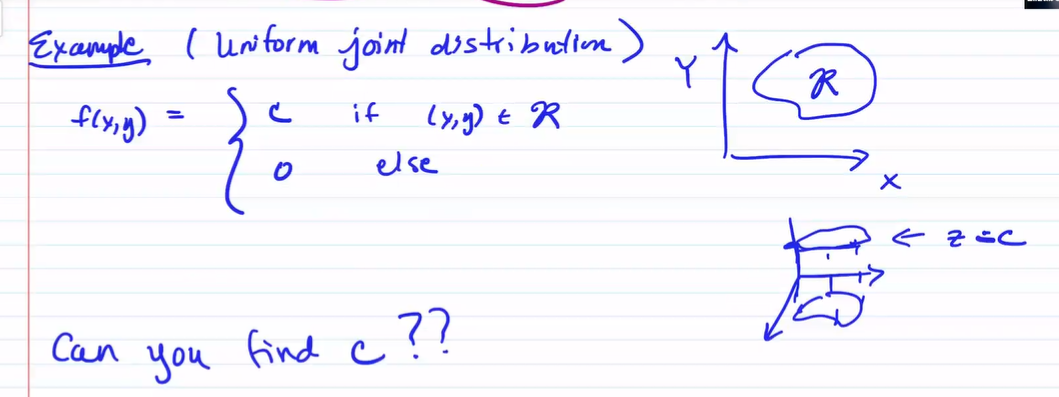 Example (Uniform joint distribution)
f(x,y) = { c if (x,y) ∈ R
0 else
Y
R
x
← z = c
Can you find c??